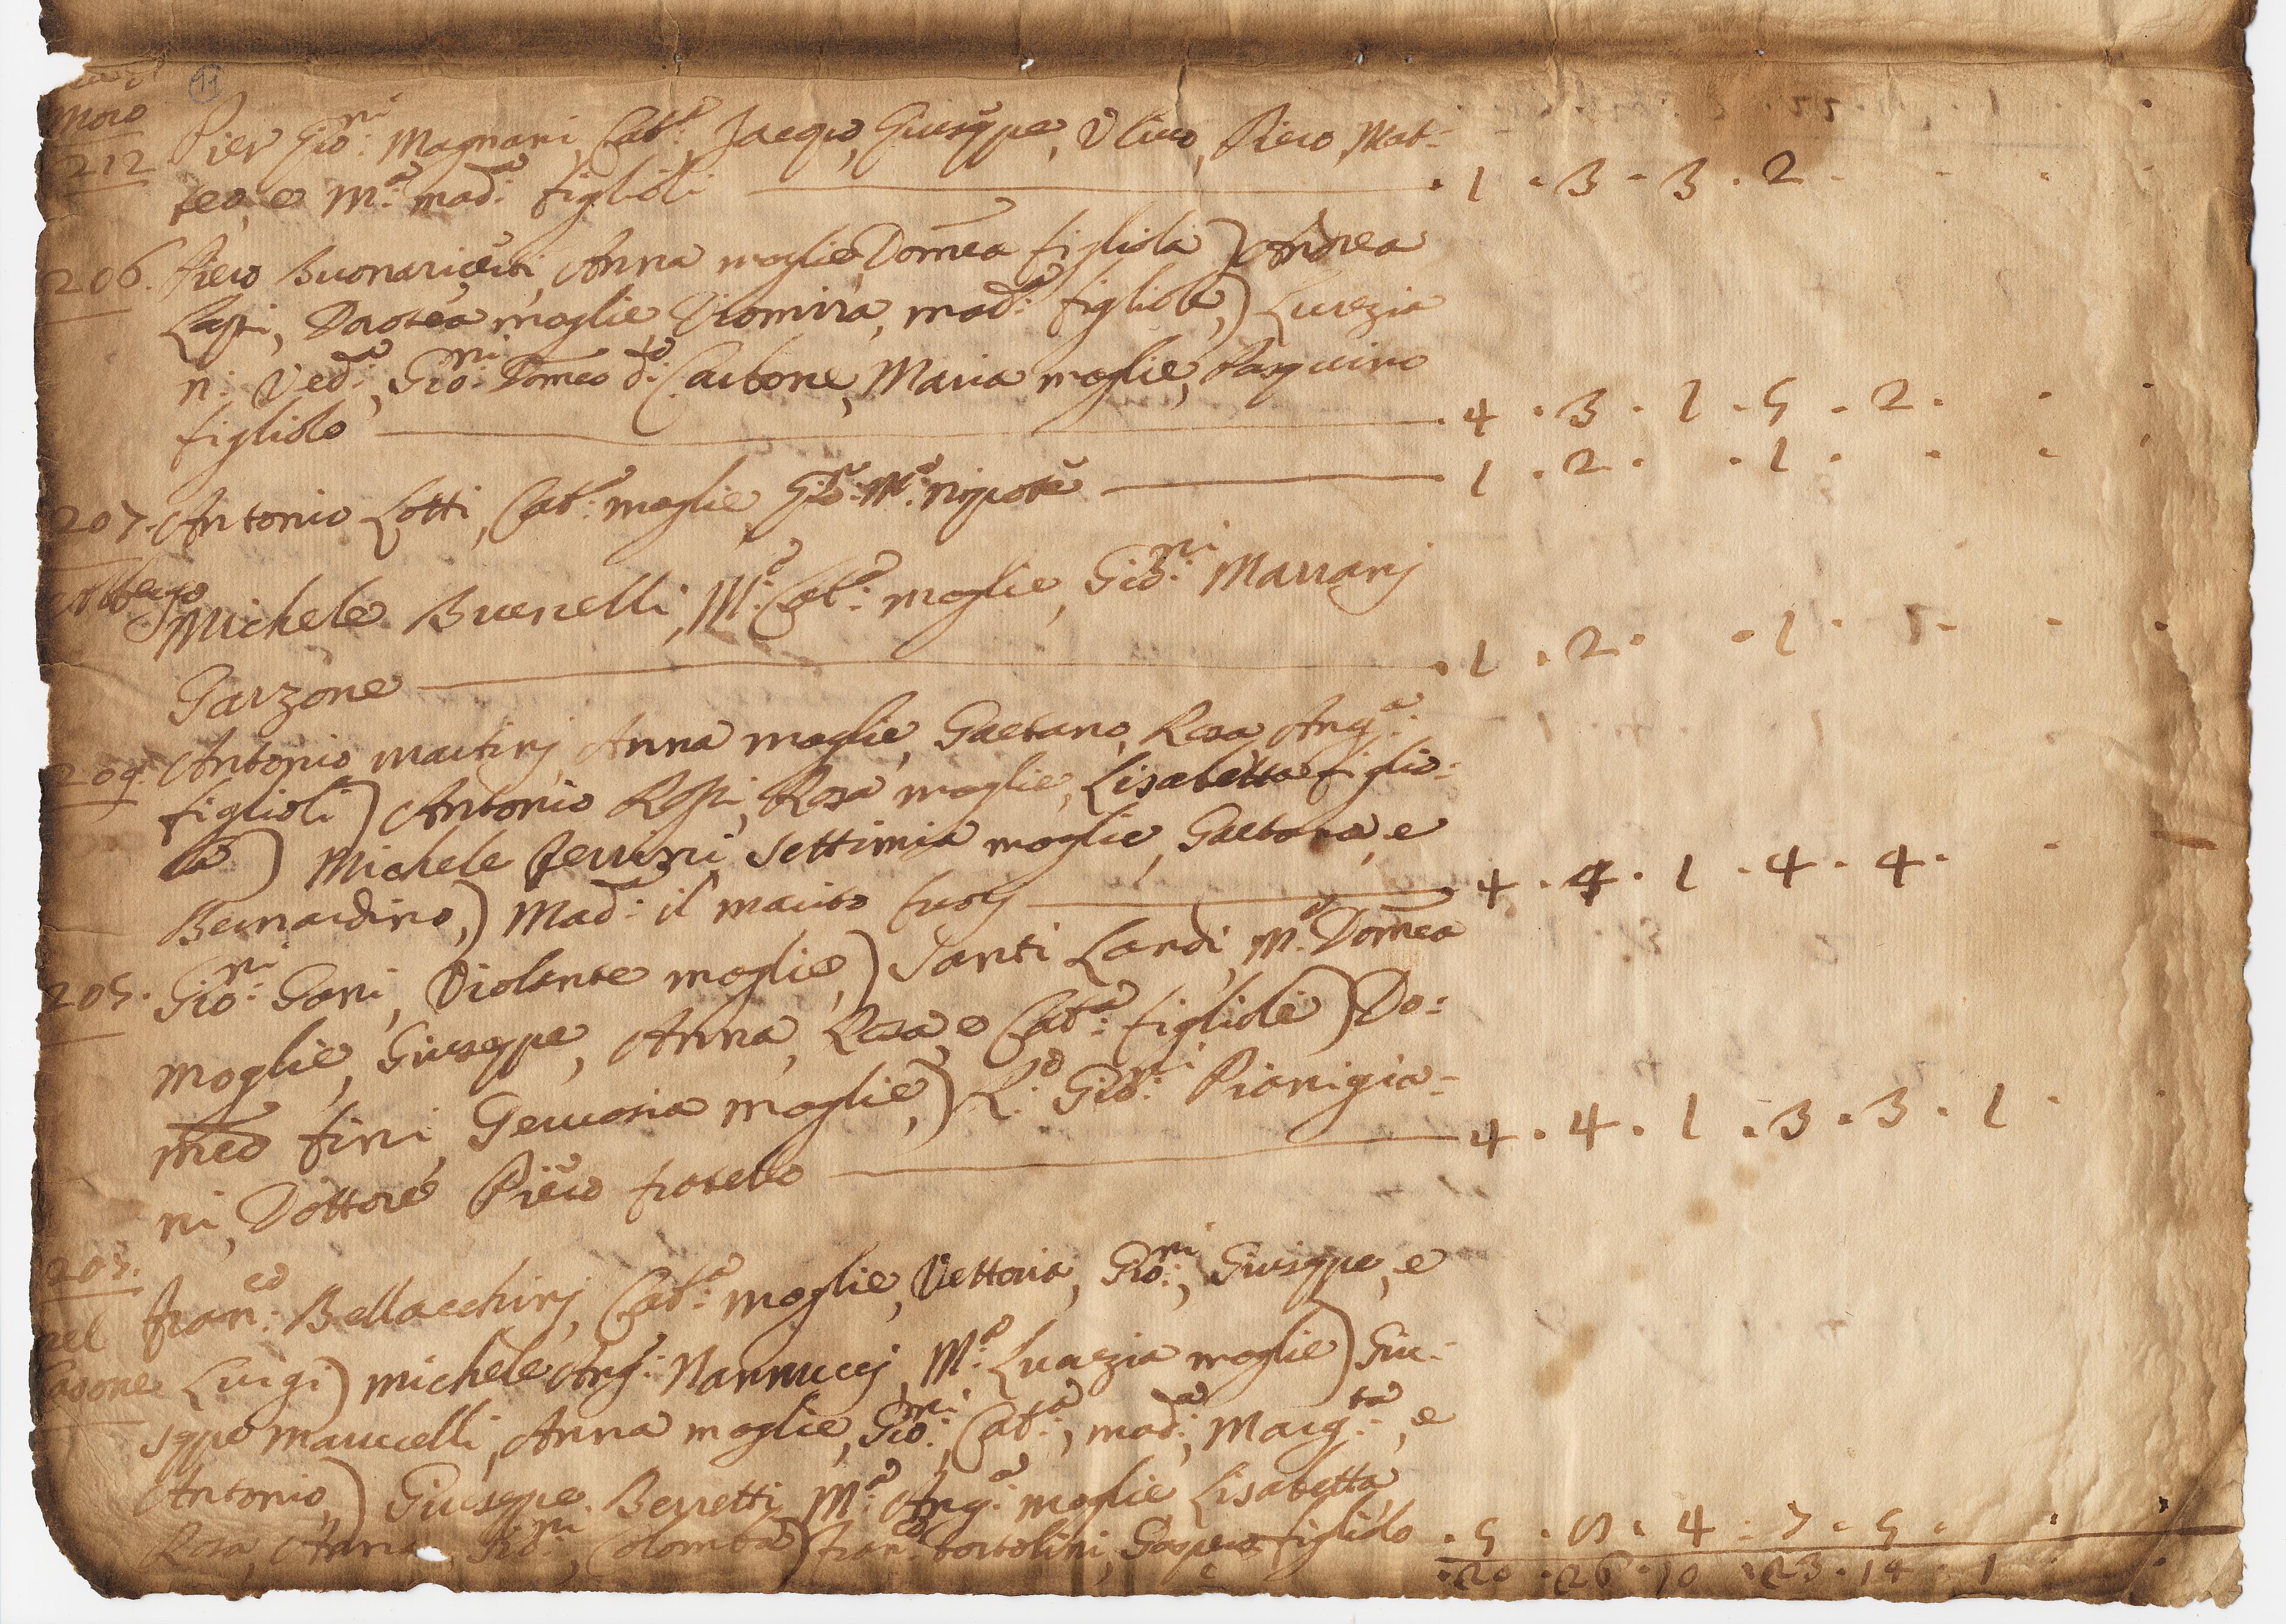 11
moro
212
Pier Gio:ni Magnani, Cat:a, Jacopo, Giuseppe, Ulivo, Piero, Mat-
teo, e M:a mad:a figlioli . 1 . 3 . 3 . 2 . . . .
206. Piero Buonaricevi, Anna moglie, Domea figliola) Andrea
Lapi, Dorotea moglie, Diomira, mad:a figliole,) Lucrezia
n: Ved:a, Gio:ni Domco d:to Carbone, Maria moglie, Pasquino
figliolo . 4 . 3 . 1 . 5 . 2 . . .
207. Antonio Lotti, Cat:a moglie, Gio: M:a nipote . 1 . 2 . . 1 . . . .
Albergo
Michele Burrelli, M:a Cat:a moglie, Gio:ni Marranj
Garzone . 1 . 2 . . 1 . 1 . . .
209. Antonio Martinj, Anna moglie, Gaetano, Rosa, Ang:a
figlioli) Antonio Rossi, Rosa moglie, Lisabetta figlio:
la) Michele Ferrini, Settimia moglie, Gaetana, e
Bernardino,) Mad:a il marito fuorj 4 . 4 . 1 . 4 . 4 . .
205. Gio:ni Gori, Violante moglie,) Santi Landi, M:a Domea
moglie, Giuseppe, Anna, Rosa, e Cat:a figliole) Do:
meo fini, Gervasia moglie,) R:o Gio:ni Pianigia-
ni, Dottore Piero fratello 4 . 4 . 1 . 3 . 3 . 1 . .
203.
nel
Casone
Fran:co Bellacchinj, Cat:a moglie, Vettoria, Gio:ni, Giuseppe, e
Luigi) Michele Ang: Nannuccj, M:a Lucrezia moglie) Giu:
seppe Marucelli, Anna moglie, Gio:ni, Cat:a, mad:a, Marg:ta, e
Antonio,) Giuseppe Berretti, M:a Ang:a moglie Lisabetta
Rosa, Anna, Gio:ni, Colomba) Fran:co bortolini, Gaspero figliolo . 5 . 8 . 4 . 7 . 5 . .
. 20 . 26 . 10 . 23 . 14 . 1 . .